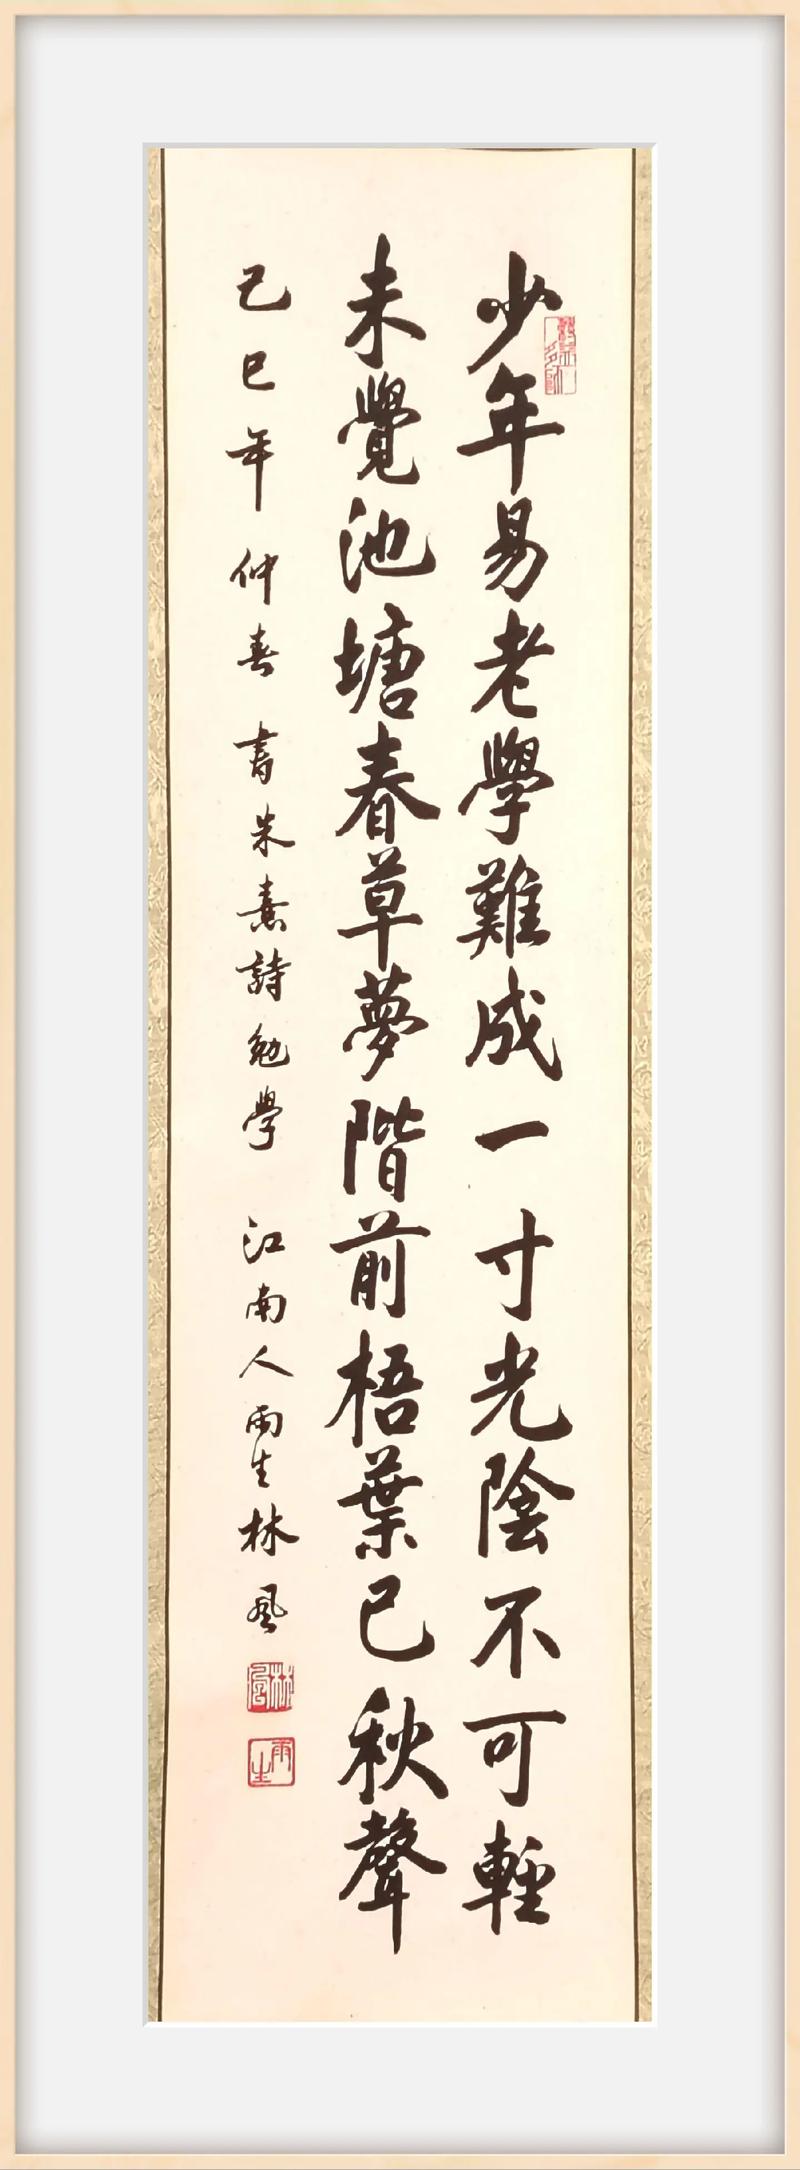 少年易老學難成一寸光陰不可輕
未覺池塘春草夢階前梧葉已秋聲
己巳年仲春書朱熹詩勉學江南人雨生林風
雨生